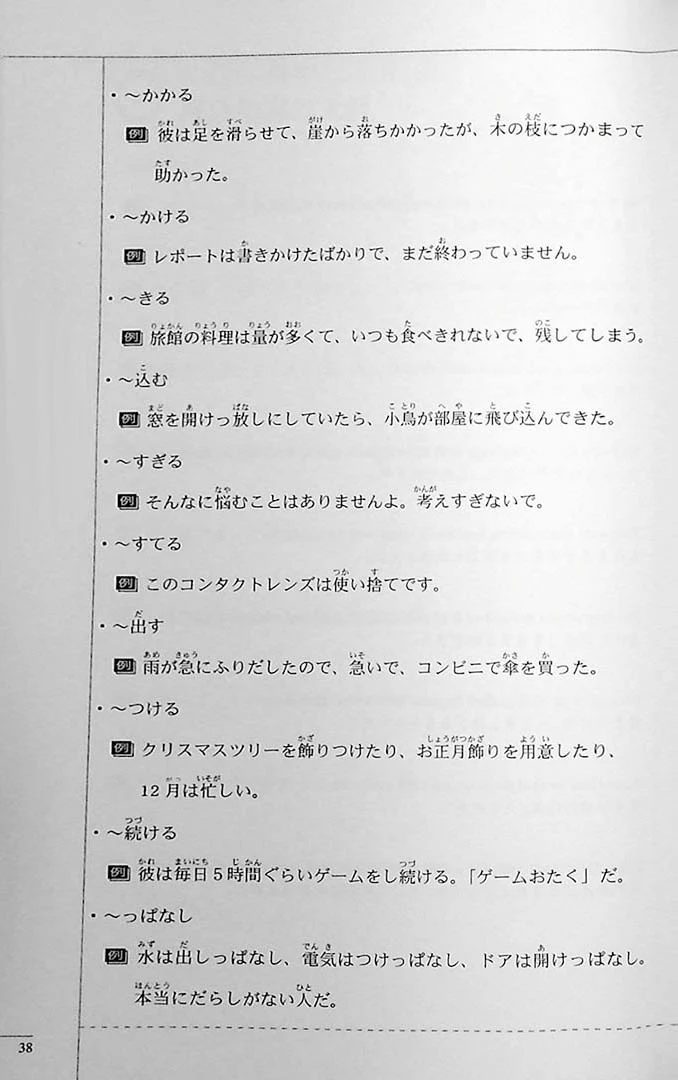 ・～かかる
例 彼は足を滑らせて、崖から落ちかかったが、木の枝につかまって
助かった。
・～かける
例 レポートは書きかけたばかりで、まだ終わっていません。
・～きる
例 旅館の料理は量が多くて、いつも食べきれないで、残してしまう。
・～込む
例 窓を開けっ放しにしていたら、小鳥が部屋に飛び込んできた。
・～すぎる
例 そんなに悩むことはありませんよ。考えすぎないで。
・～すてる
例 このコンタクトレンズは使い捨てです。
・～出す
例 雨が急にふりだしたので、急いで、コンビニで傘を買った。
・～つける
例 クリスマスツリーを飾りつけたり、お正月飾りを用意したり、
12月は忙しい。
・～続ける
例 彼は毎日5時間ぐらいゲームをし続ける。「ゲームおたく」だ。
・～っぱなし
例 水は出しっぱなし、電気はつけっぱなし、ドアは開けっぱなし。
本当にだらしがない人だ。
38